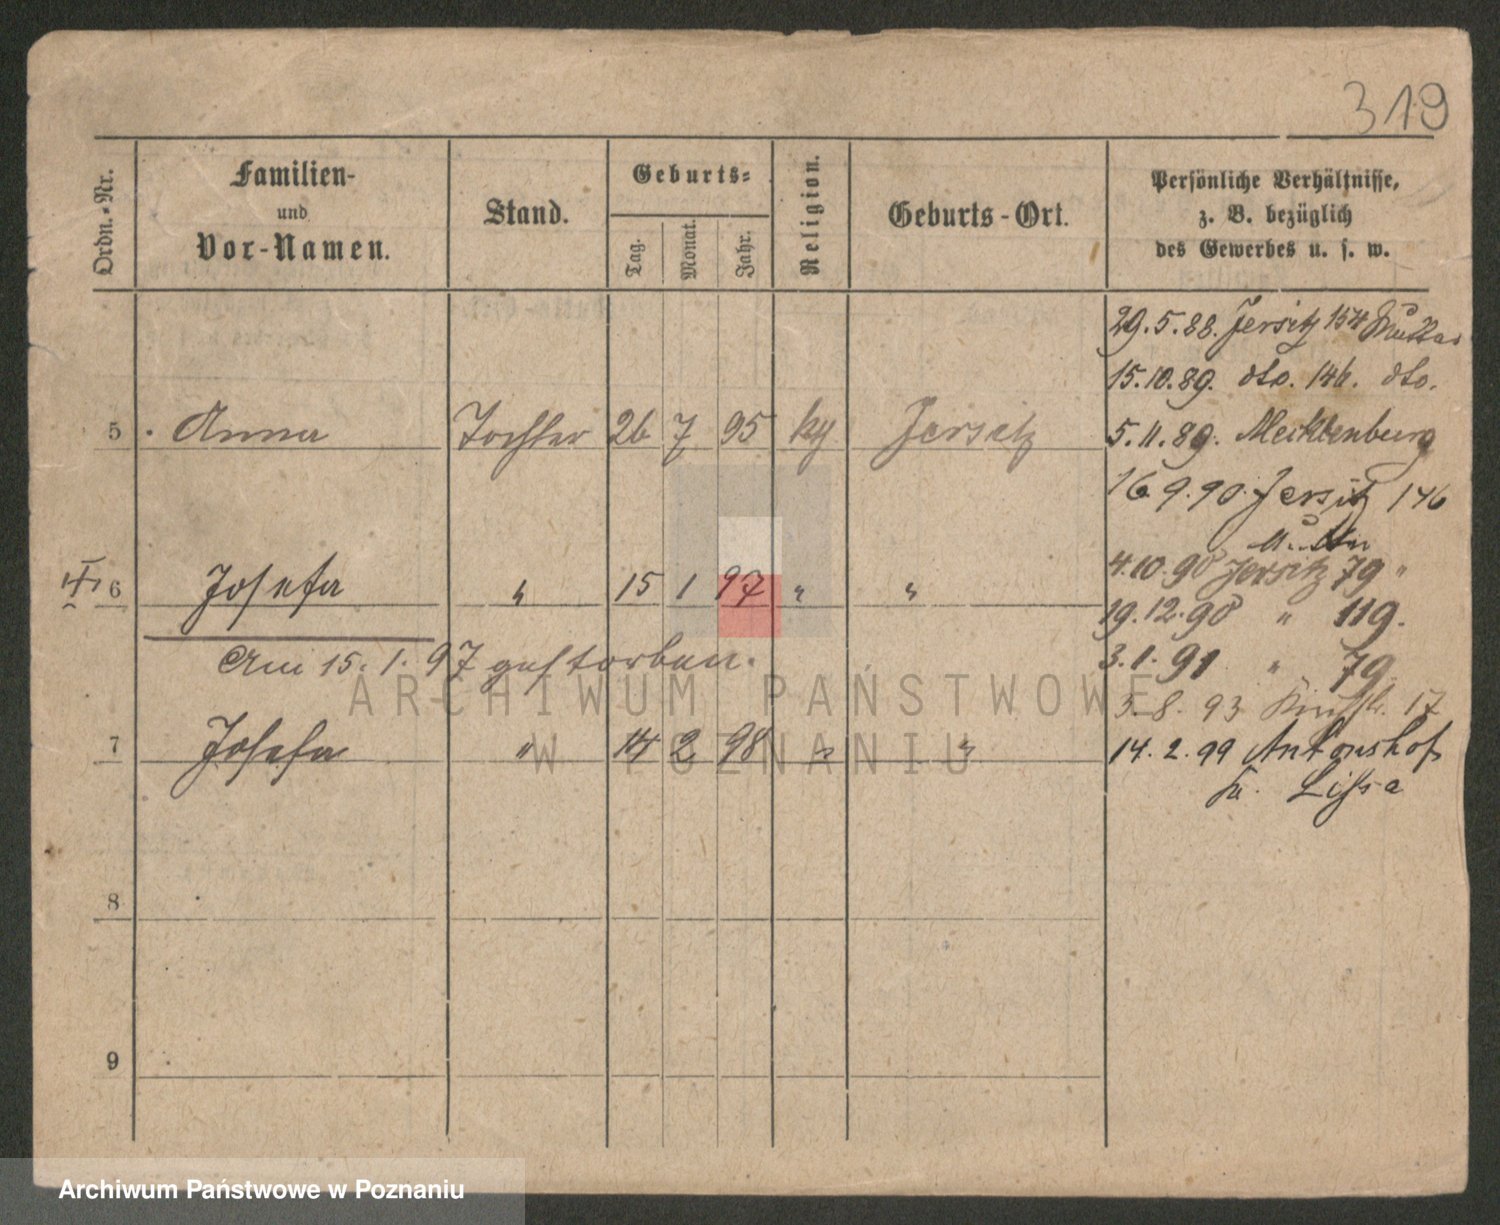 319
Ordn.-Nr.
Familien-
und
Vor-Namen.
Stand.
Geburts-
Tag.
Monat.
Jahr.
Religion.
Geburts-Ort.
Persönliche Verhältnisse,
z. B. bezüglich
des Gewerbes u. s. w.
29.5.88. Jersitz 154 Mutter
15.10.89. dto. 146. dto.
5 Anna Tochter 26 7 95 Jersitz
5.11.89. Mecklenburg
16 9.90 Jersitz 146
Mutter
4.10.90 Jersitz 79 "
6 Josefa " 15 1 97 " "
19.12.90 " 119.
Am 15.1.97 gestorben.
3.1.91 " 79
5.8.93 17
7 Josefa " 14 2 98 " "
14.2.99 Antonshof
Lissa
8
9
ARCHIWUM PAŃSTWOWE
W POZNANIU
Archiwum Państwowe w Poznaniu